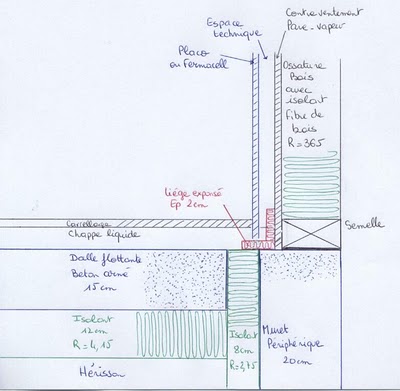 Espace
technique
Contreventement
Pare-vapeur
Placo
ou Fermacell
Ossature
Bois
avec
isolant
Fibre de
bois
R=365
Liège expansé
Ep 2cm
Carrelage
Chappe liquide
Semelle
Dalle flottante
Beton armé
15cm
Isolant
12cm
R=4,15
Isolant
8cm
R=2,75
Muret
Périphérique
20cm
Hérisson